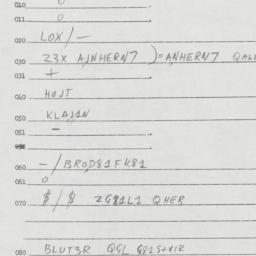 010 0
011 0
020 LOX/—
030 Z3X A1NHERN7 )=A1NHERN7 QAL
031 +
040 HOJT
050 KLA51N
051 —
060 —/BROD81FK81
061 0
070 $/$ ZG81L1 QHER
080 BLUT3R QGL G815+V1R